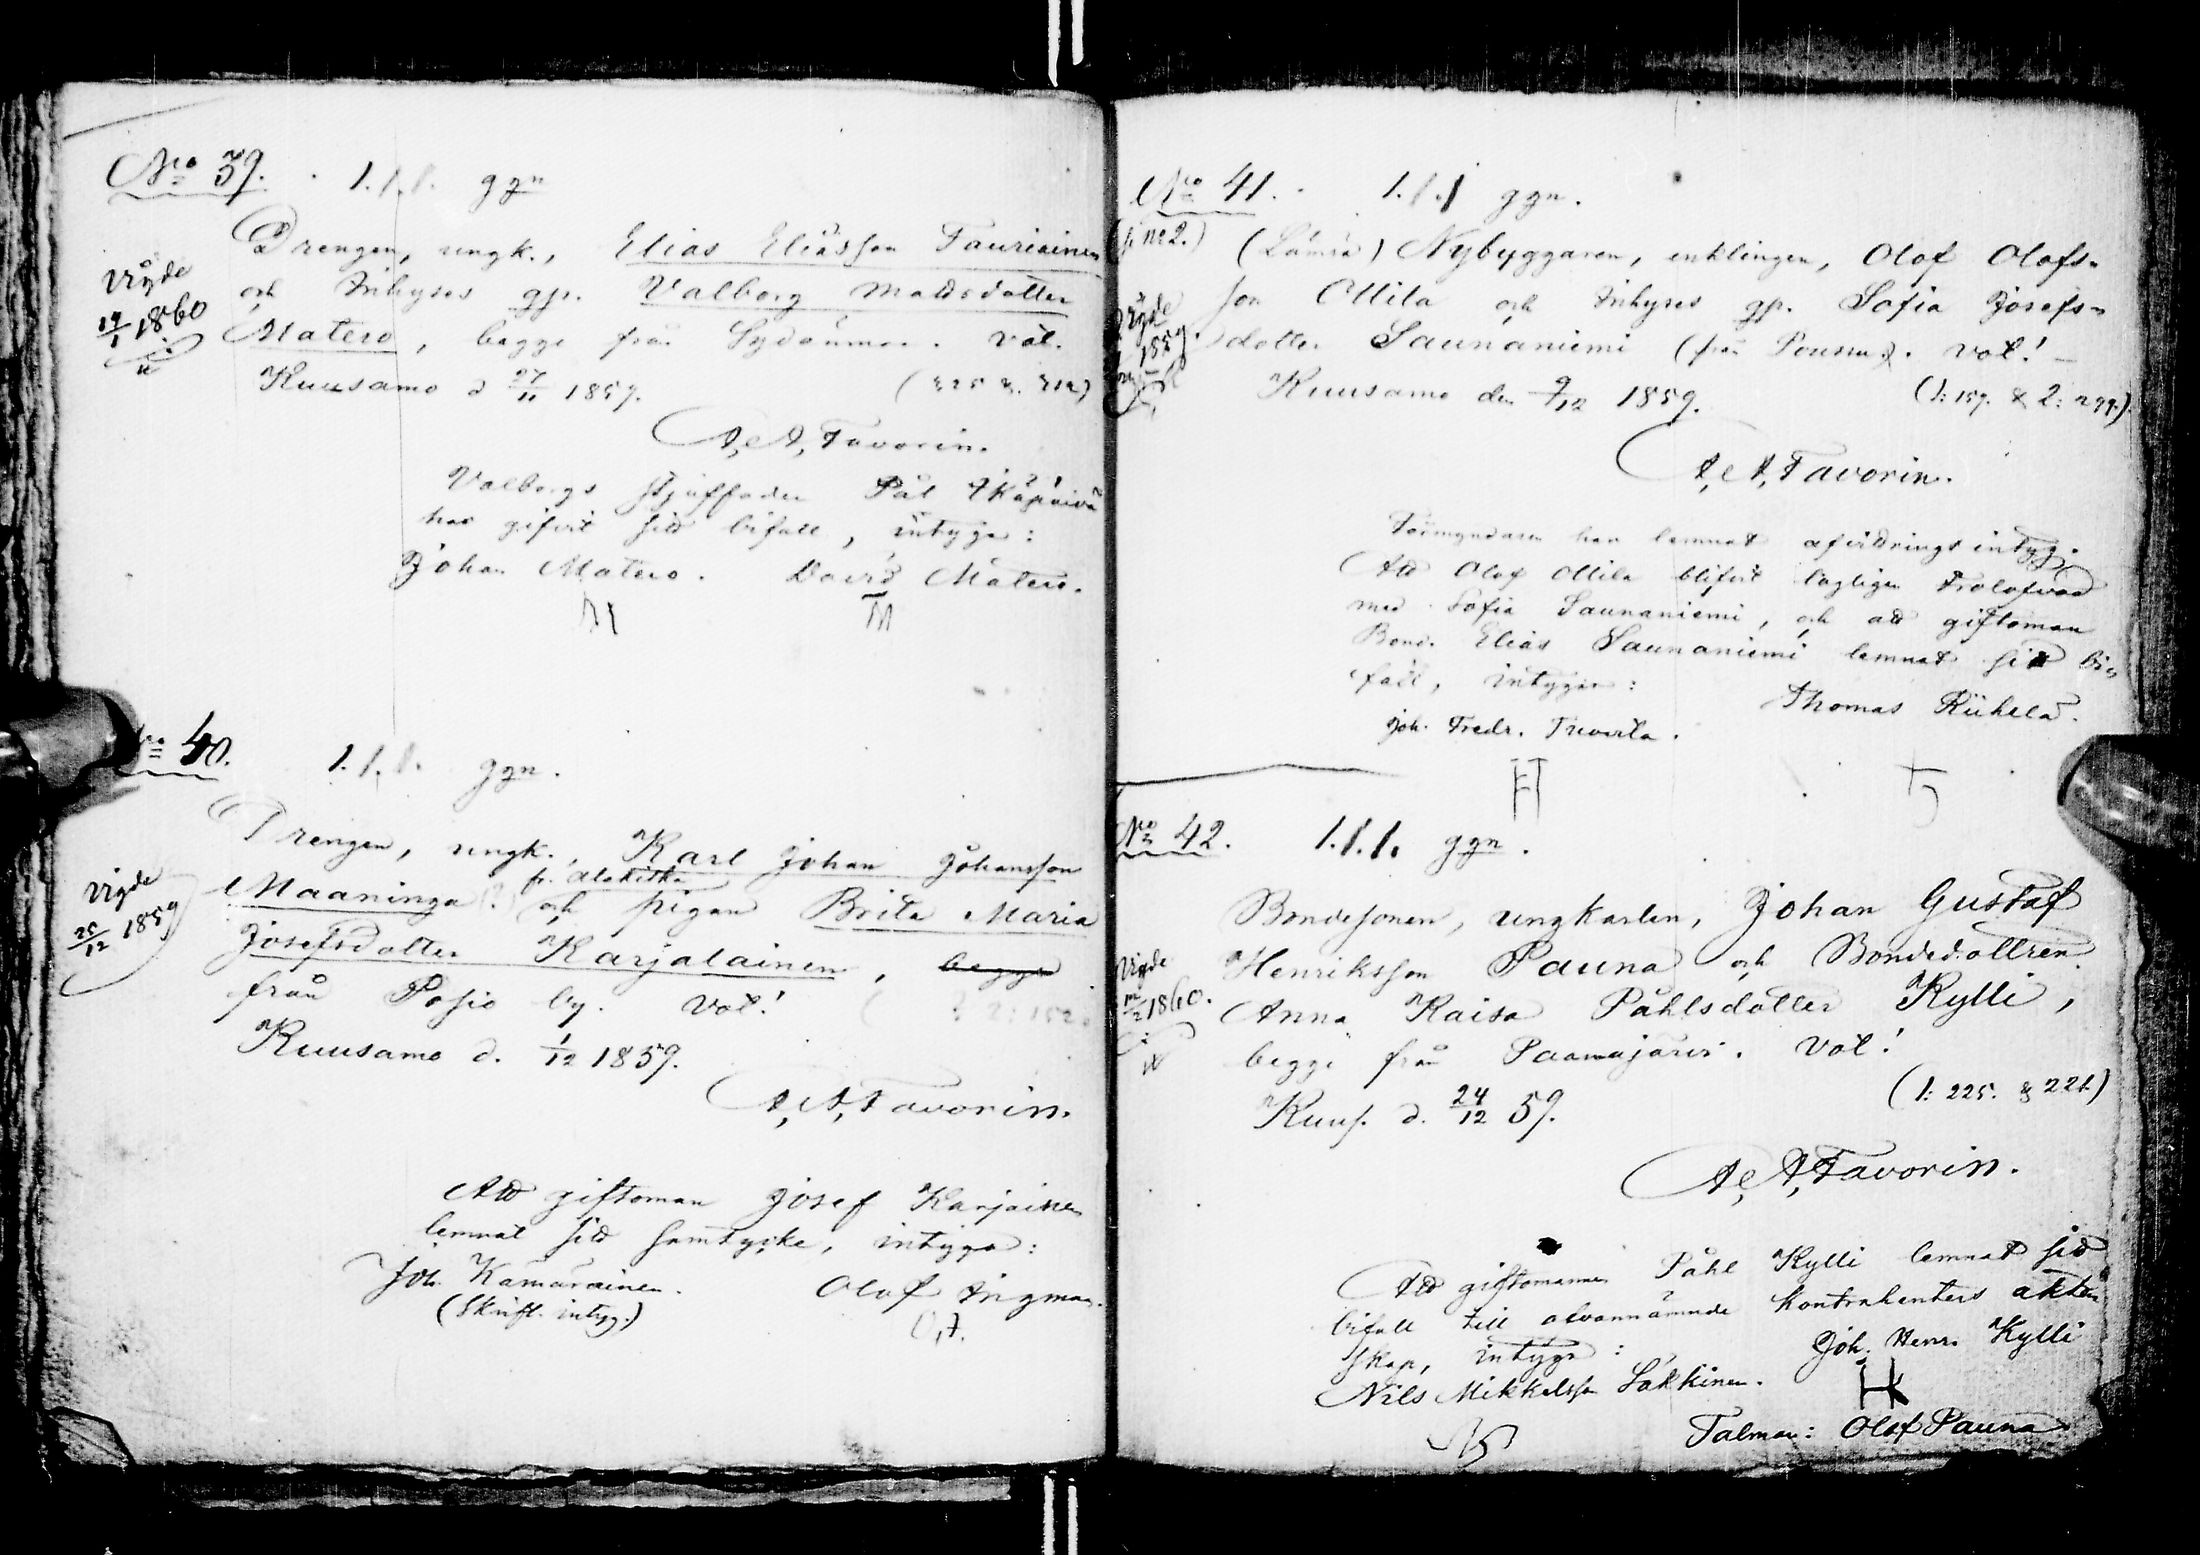 No 39. 1.1.1. ggn
Drengen, ungk., Elias Eliasson Tauriainen
och Inhyses gp. Valborg Matsdotter
Matero, begge från Sydänmaa. Vol.
Kuusamo d 27/11 1859. (325 & 312)
Vigde
1860
A. A. Favorin.
Valborgs stjuffader Pål Ikäpäivä
har gifvit sitt bifall, intyga:
Johan Matero. David Matero.
No 40. 1.1.1. ggn.
Drengen, ungk., Karl Johan Johansson
fr. Alakitka
Maaninga (?) och pigan Brita Maria
Josefsdotter Karjalainen, begge
från Posio by. Vol!
Kuusamo d. 1/12 1859.
Vigde
25/12 1859
A. A. Favorin.
Att giftoman Josef Karjainen
lemnat sitt samtycke, intyga:
Joh. Kämäräinen. Olof Ingman.
(Skrift. intyg.)
No 41. 1.1.1 ggn.
(Lämsä) Nybyggaren, enklingen, Olof Olofs-
son Ollila och Inhyses gp. Sofia Josefs-
dotter Saunaniemi (från Poussu). Vol! -
Kuusamo den 9/12 1859. (1: 159. & 2: 299.)
Vigde
1859
A. A. Favorin.
Förmyndaren har lemnat afvittringsintyg.
Att Olof Ollila blifvit lagligen trolofvad
med Sofia Saunaniemi, och att giftoman
Bond. Elias Saunaniemi lemnat sitt bi-
fall, intyga:
Thomas Riihelä.
Joh. Fredr. Tuovila.
No 42. 1.1.1. ggn.
Bondesonen, ungkarlen, Johan Gustaf
Henriksson Pauna och Bondedottren
Anna Kaisa Påhlsdotter Kylli,
begge från Paanajärvi. Vol!
Kuus. d. 24/12 59. (1: 225. & 221.)
Vigde
1860.
A. A. Favorin.
Att giftomannen Påhl Kylli lemnat sitt
bifall till ofvannämnde kontrahenters äkten-
skap, intyga: Joh. Henr. Kylli
Nils Mikkelsson Säkkinen.
Talman: Olof Pauna